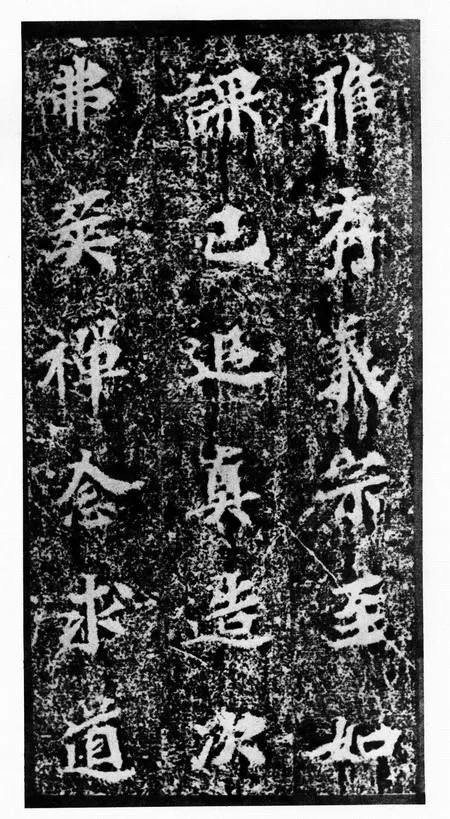 雅有崇至如
課己追真造次
弗爽禪念求道